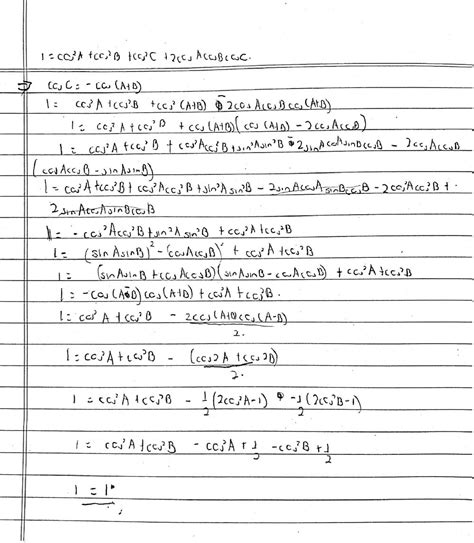 1 = cos²A + cos²B + cos²C + 2cosAcosBcosC.
⇒ cosC = - cos(A+B)
1 = cos²A + cos²B + cos²(A+B) - 2cosAcosBcos(A+B)
1 = cos²A + cos²B + cos(A+B)(cos(A+B) - 2cosAcosB)
1 = cos²A + cos²B + cos²Acos²B + sin²Asin²B - 2sinAcosAsinBcosB - 2cosAcosB
(cosAcosB - sinAsinB)
1 = cos²A + cos²B + cos²Acos²B + sin²Asin²B - 2sinAcosAsinBcosB - 2cos²Acos²B +
2sinAcosAsinBcosB
1 = - cos²Acos²B + sin²Asin²B + cos²A + cos²B
1 = (sinAsinB)² - (cosAcosB)² + cos²A + cos²B
1 = (sinAsinB + cosAcosB)(sinAsinB - cosAcosB) + cos²A + cos²B
1 = -cos(A-B)cos(A+B) + cos²A + cos²B.
1 = cos²A + cos²B - 2cos(A+B)cos(A-B)
2.
1 = cos²A + cos²B - (cos2A + cos2B)
2.
1 = cos²A + cos²B - 1/2(2cos²A-1) - 1/2(2cos²B-1)
1 = cos²A + cos²B - cos²A + 1/2 - cos²B + 1/2
1 = 1